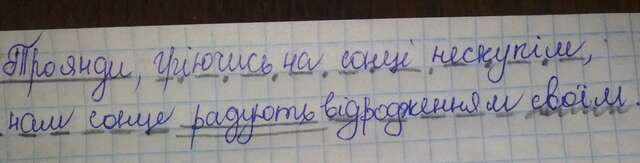 Троянди, гріючись на сонці нескупім,
нам сонце радують відродженням своїм.